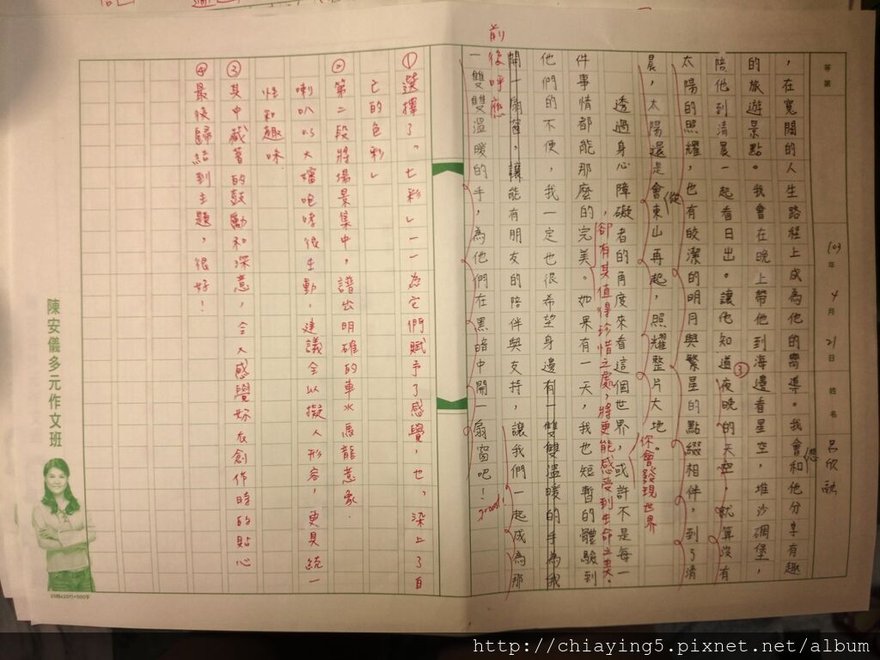 等第
109年4月21日 姓名 呂欣融
，在寬闊的人生路程上成為他的嚮導。我會和他分享有趣
的旅遊景點。我會在晚上帶他到海邊看星空，堆沙碉堡，
陪他到清晨一起看日出。讓他知道夜晚的天空，就算沒有
③
太陽的照耀，也有皎潔的明月與繁星的點綴相伴，到了清
晨，太陽還是會從東山再起，照耀整片大地。
你會發現世界
透過身心障礙者的角度來看這個世界，或許不是每一
，卻有其值得珍惜之處，將更能感受到生命之美。
件事情都能那麼的完美。如果有一天，我也短暫的體驗到
他們的不便，我一定也很希望身邊有一雙雙溫暖的手為我
開一扇窗，讓能有朋友的陪伴與支持，讓我們一起成為那
前後呼應
一雙雙溫暖的手，為他們在黑暗中開一扇窗吧！
good!
①選擇了「七彩」——為它們賦予了感覺，也「染上了自
己的色彩」
②第二段將場景集中，譜出明確的車水馬龍意象.
喇叭以大嬸咆哮很生動，建議全以擬人形容，更具統一
性和趣味
③其中藏著的鼓勵和深意，令人感覺妳在創作時的貼心
④最後歸結到主題，很好！
陳安儀多元作文班
http://chiaying5.pixnet.net/album